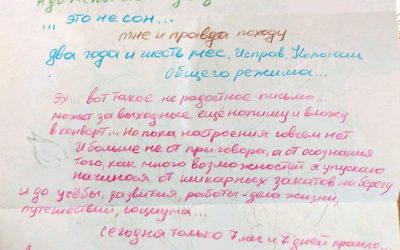 ... это не сон...
мне и правда походу
два года и шесть мес. Исправ. Колонии
общего режима...
Эх... вот такое не радостное письмо...
может за выходные ещё напишу и вложу
в конверт... Но пока настроения совсем нет
И больше не от приговора, а от осознания
того, как много возможностей я упускаю
начиная от шикарных закатов на берегу
и до учёбы, развития, работы - дела жизни,
путешествий, социума...
сегодня только 7 мес и 7 дней прошло...